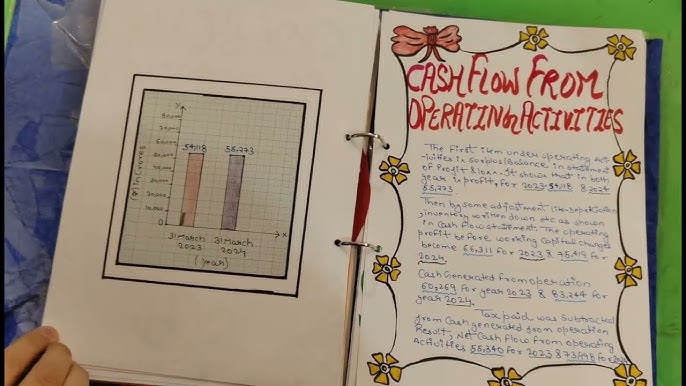 Y
80,000
70,000
60,000
50,000
40,000
30,000
20,000
10,000
0
(₹) in Crores
54,118
55,273
X
31 March 2023
31 March 2024
(year)
CASH FLOW FROM
OPERATING ACTIVITIES
The First item under operating Act-
ivities is surplus/Balance in statement
of Profit & loss. It shows that in both
year is profit, for 2023 54,118 & 2024
55,273
Then by some adjustment like depriciation
, inventory written down etc as shown
in Cash flow statement. The operating
profit before working capital changes
become 66,311 for 2023 & 75,419 for
2024.
Cash Generated from operation
60,269 for year 2023 & 83,244 for
year 2024.
Tax paid was subtracted
from Cash generated from operation
Result, Net Cash flow from operating
Activities 55,340 for 2023 &